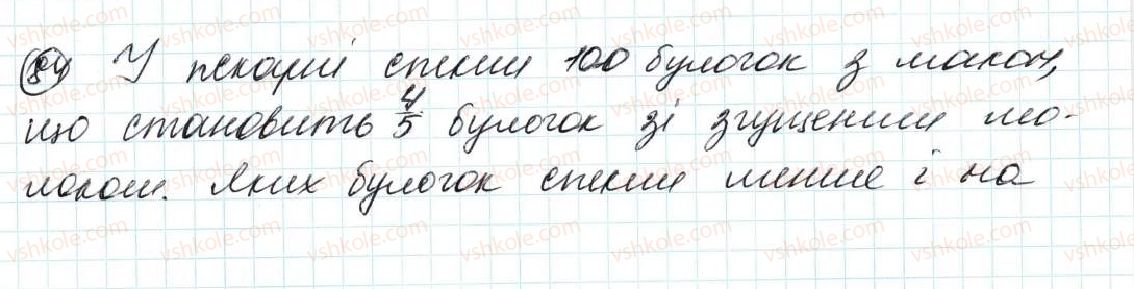 84 У пекарні спекли 100 булочок з маком,
що становить 4/5 булочок зі згущеним мо-
локом. Яких булочок спекли менше і на